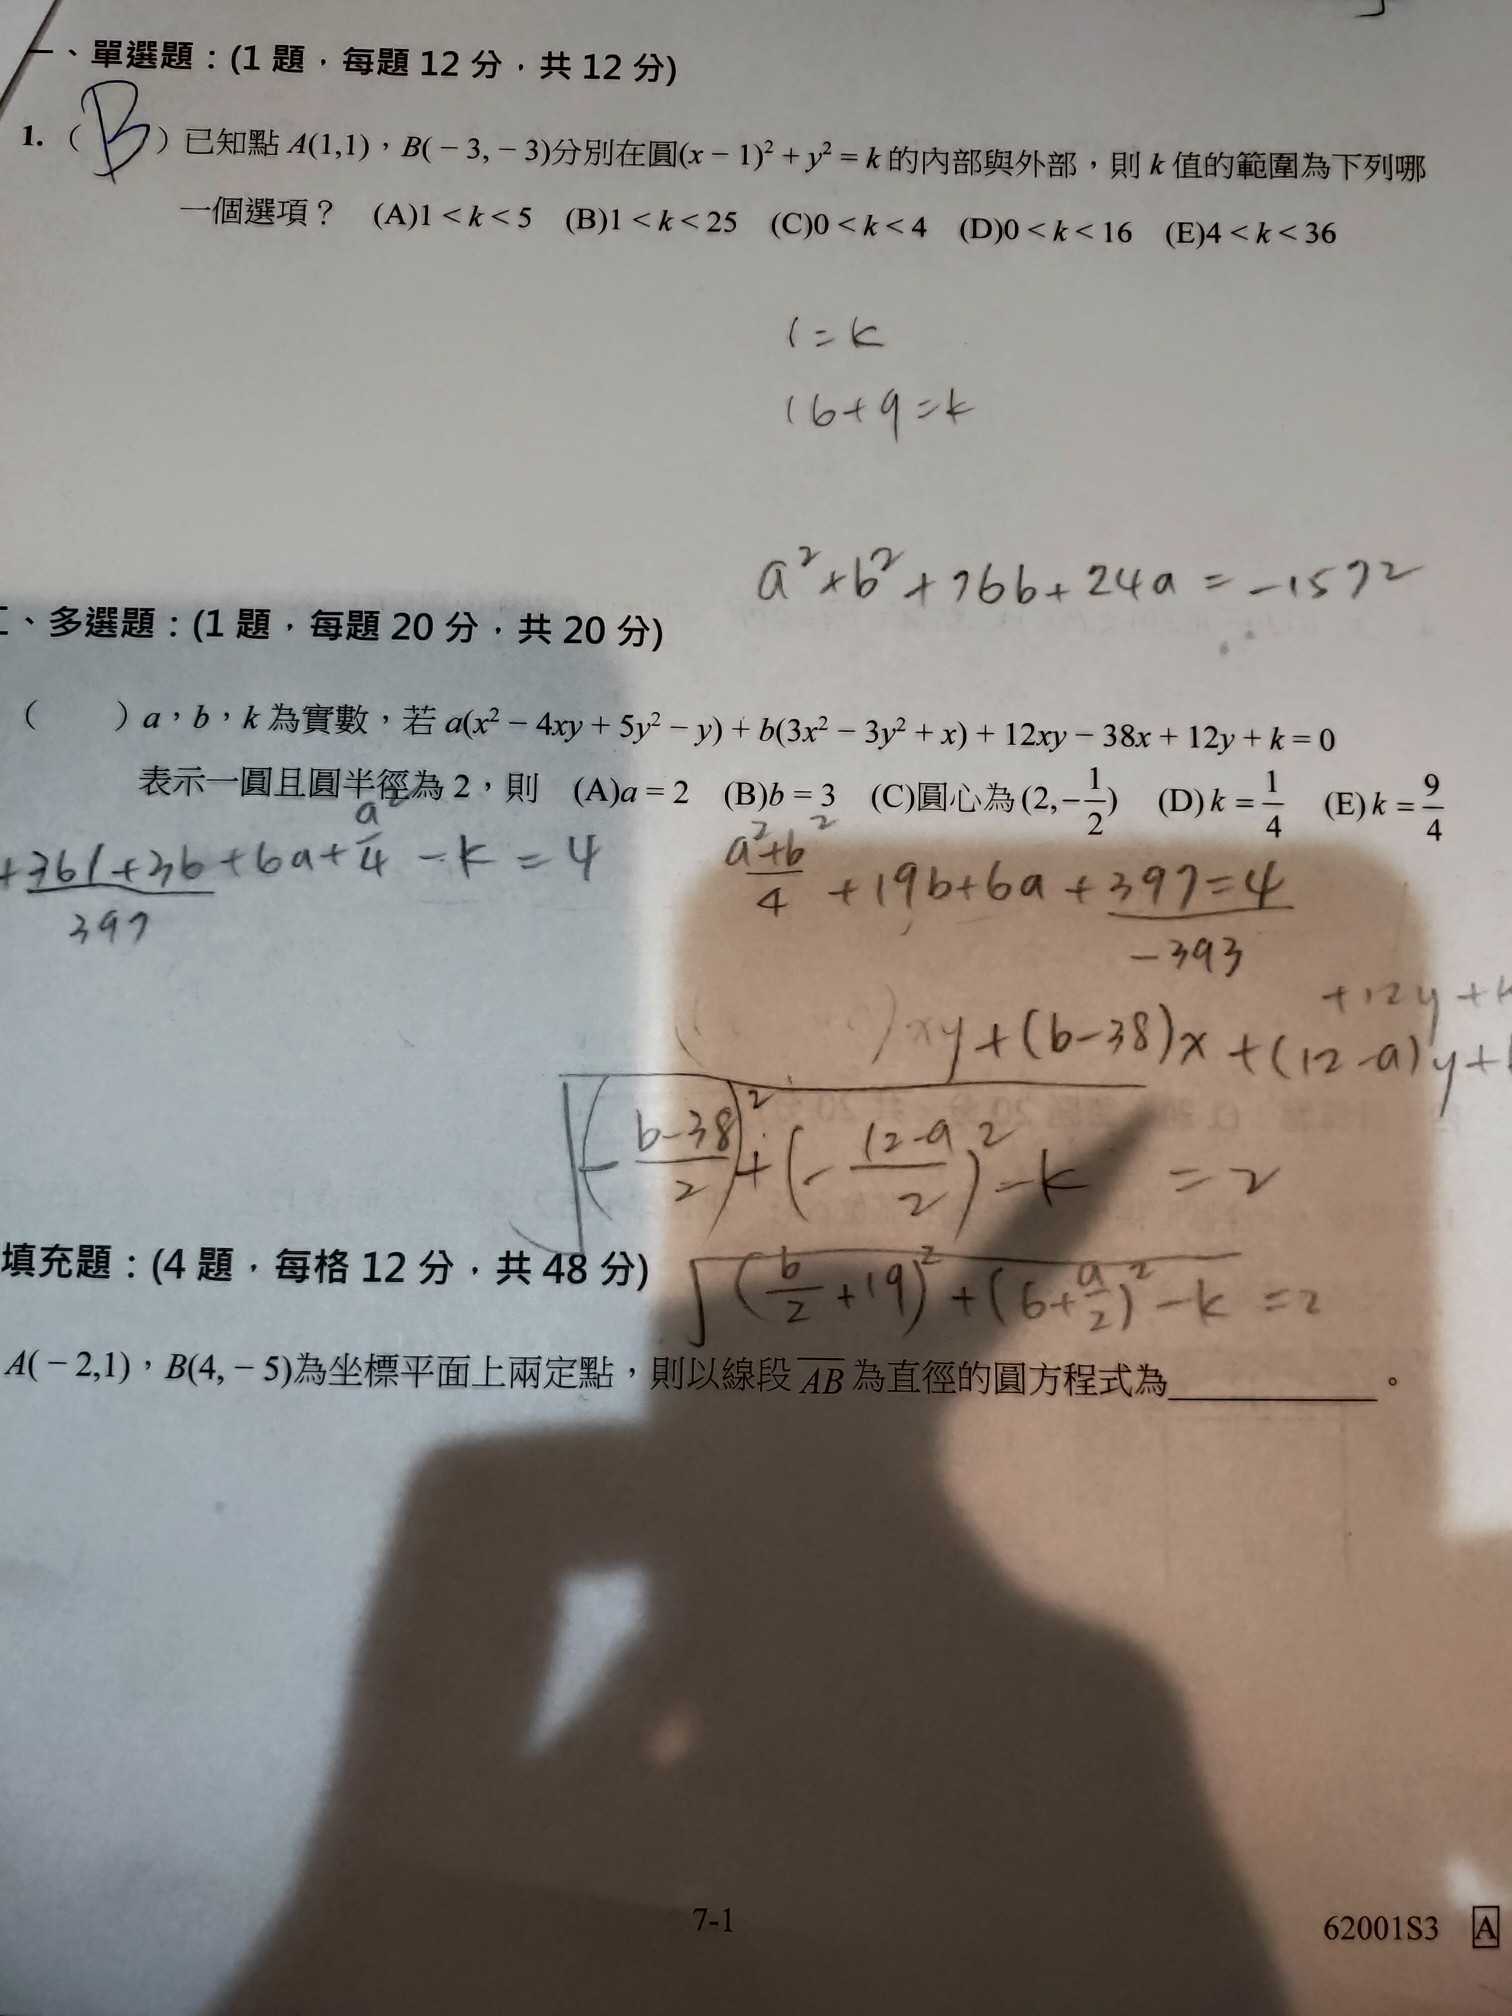 一、單選題：(1 題，每題 12 分，共 12 分)
1. ( B ) 已知點 A(1,1)，B(－3,－3)分別在圓(x－1)²＋y²＝k 的內部與外部，則 k 值的範圍為下列哪
一個選項？ (A)1＜k＜5 (B)1＜k＜25 (C)0＜k＜4 (D)0＜k＜16 (E)4＜k＜36
1=k
16+9=k
a²+b²+76b+24a=-1572
二、多選題：(1 題，每題 20 分，共 20 分)
( ) a，b，k 為實數，若 a(x²－4xy＋5y²－y)＋b(3x²－3y²＋x)＋12xy－38x＋12y＋k＝0
表示一圓且圓半徑為 2，則 (A)a＝2 (B)b＝3 (C)圓心為(2,－1/2) (D)k＝1/4 (E)k＝9/4
+361+36+6a+a²/4-k=4
397
(a²+b²)/4+19b+6a+397=4
-393
+12y+k
)xy+(b-38)x+(12-a)y+
√((-(b-38)/2)²+(-(12-a)/2)²-k)=2
√((b/2+19)²+(6+a/2)²-k)=2
填充題：(4 題，每格 12 分，共 48 分)
A(－2,1)，B(4,－5)為坐標平面上兩定點，則以線段AB為直徑的圓方程式為＿＿＿＿＿＿。
7-1
62001S3 A